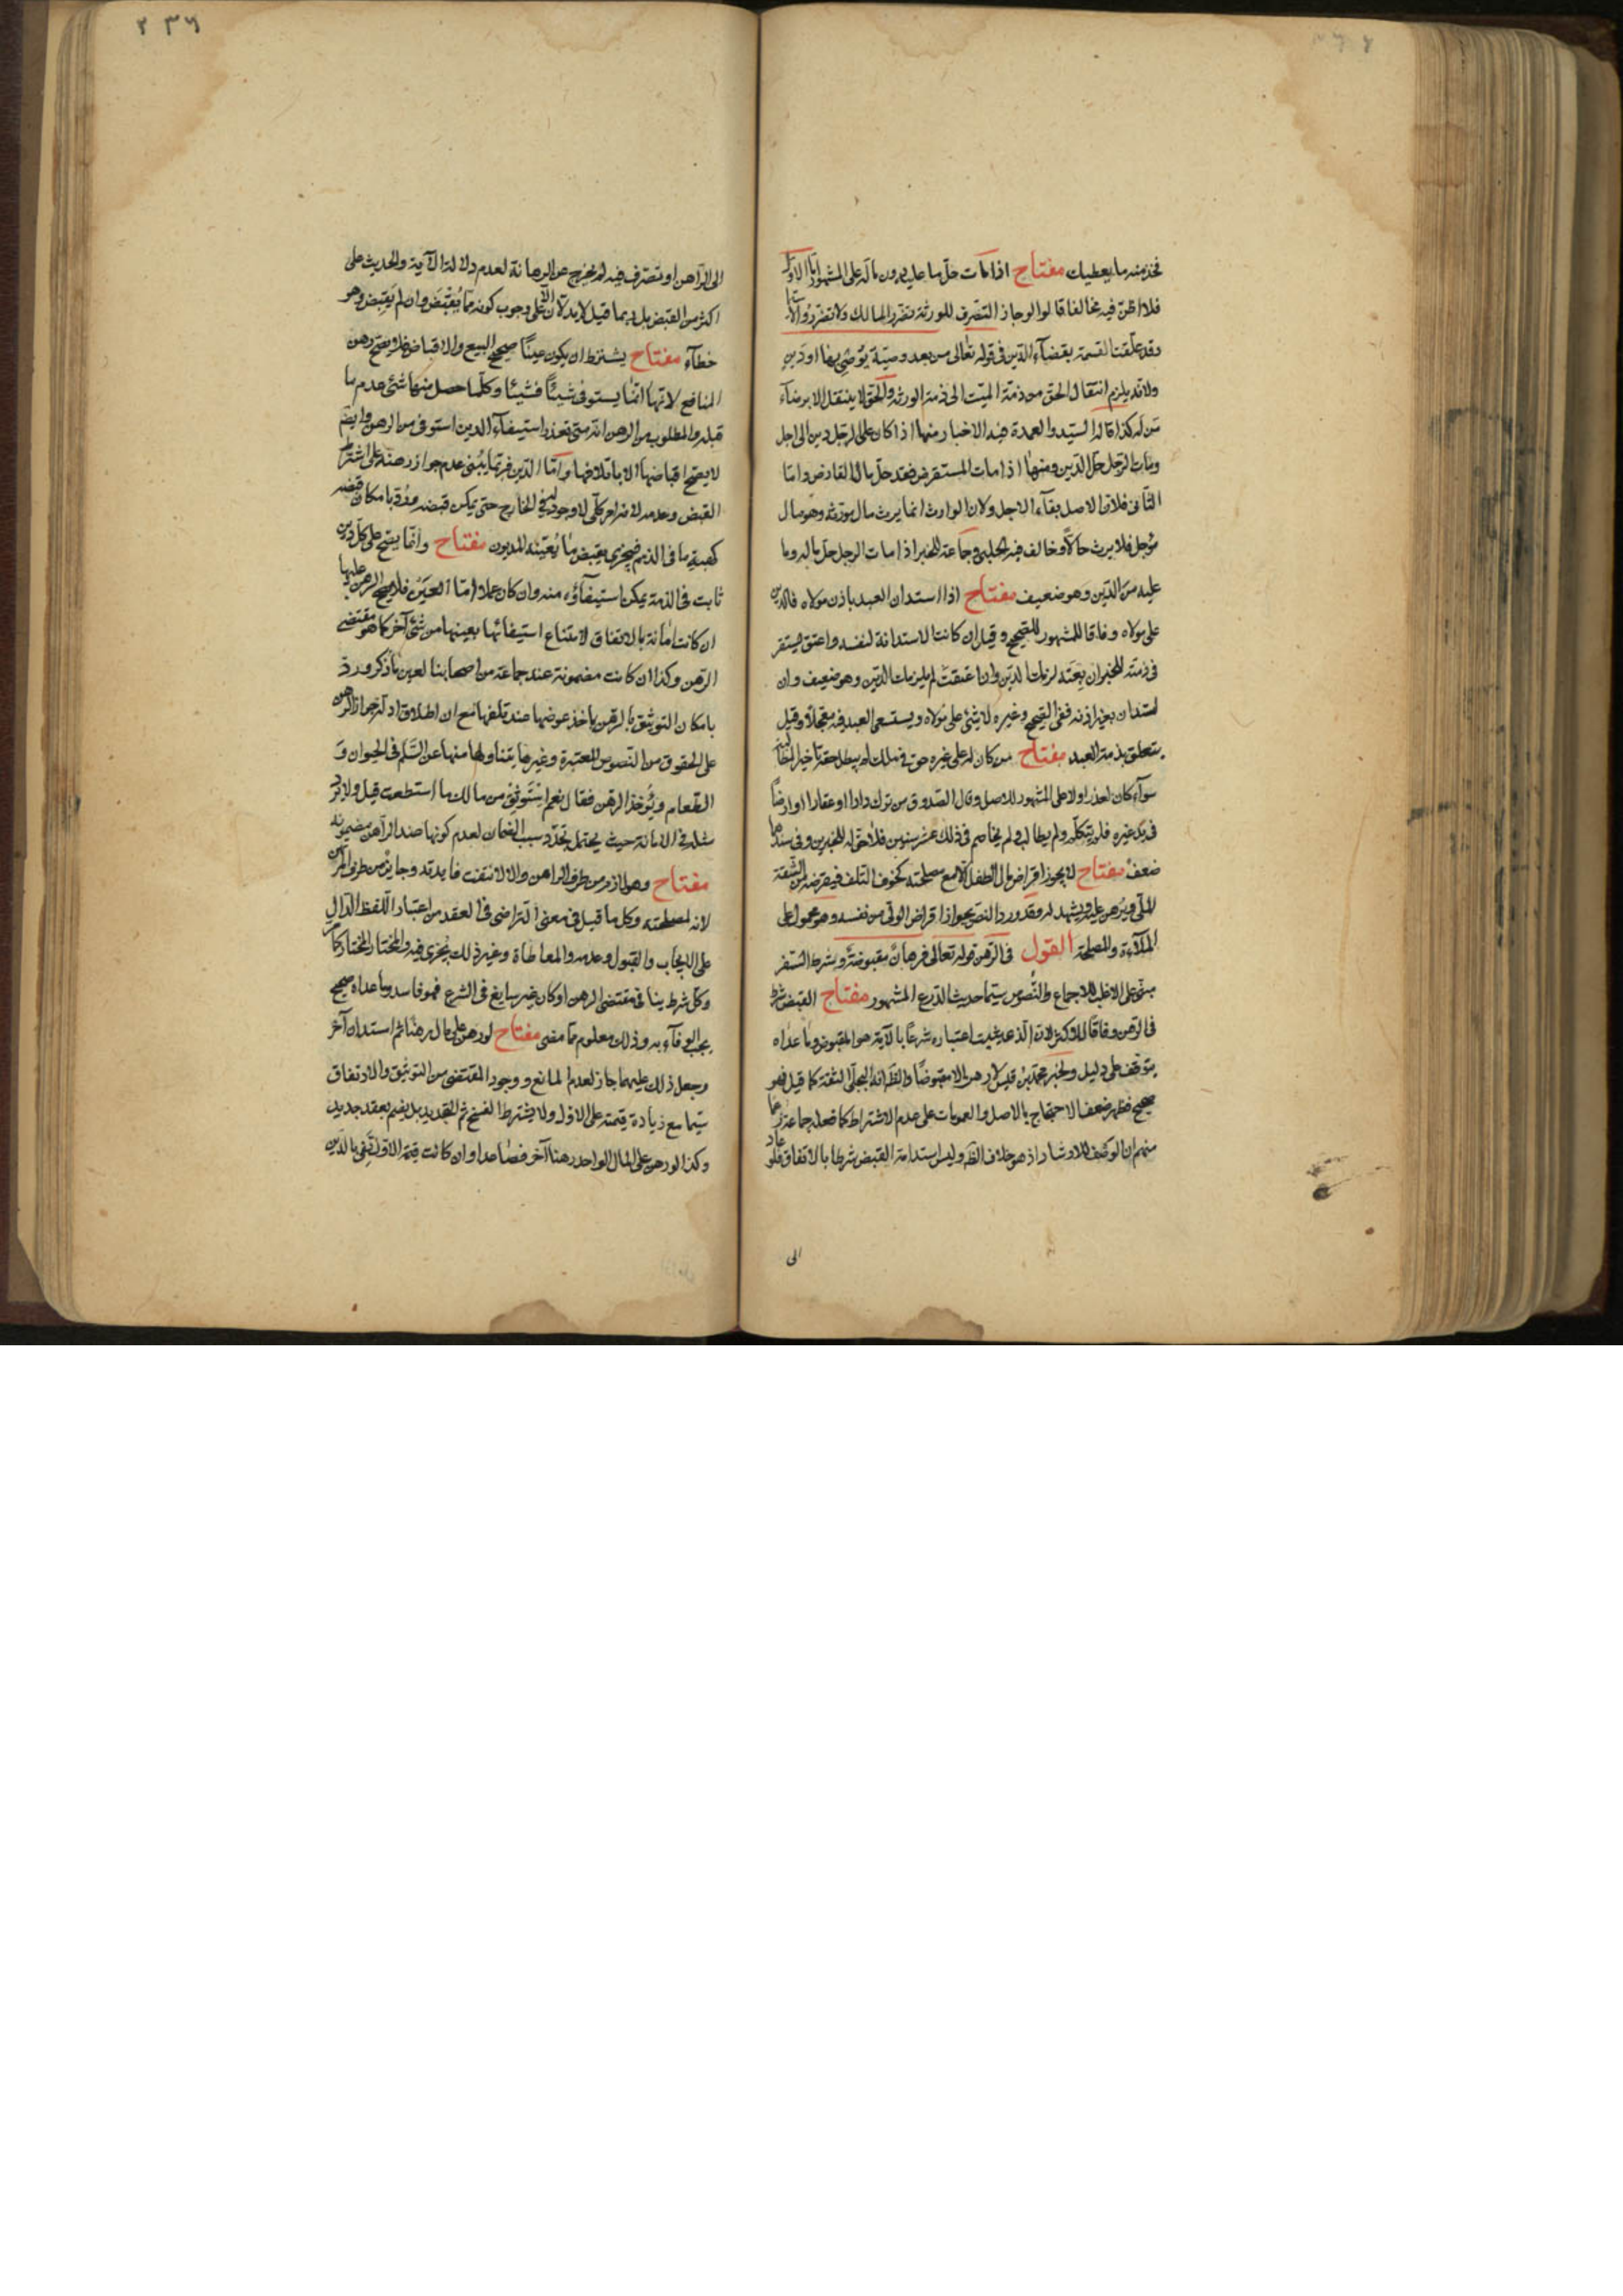 فخذ منه ما يعطيك مفتاح اذا مات حلّ ما عليه دون ماله على المشهور امّا الاوّل
فلا اظنّ فيه مخالفا قالوا لو جاز التصرف للورثة تضرر المالك ولا تضرّروا الا
وقد علّقت القسمة بقضآء الدّين فى قوله تعالى من بعد وصيّة يوصى بها او دين
ولانه يلزم انتقال الحق من ذمّة الميت الى ذمة الورثه والحق لا ينتقل الا برضآء
من له كذا قاله السّيد والعمدة هذه الاخبار منها اذا كان على الرجل دين الى اجل
ومات الرّجل حلّ الدّين ومنها اذا مات المستقرض فقد حلّ مال القارض وامّا
الثّانى فلانّ الاصل بقآء الاجل ولان الوارث انما يرث مال مورثه وهو مال
مؤجل فلا يرث حالّا وخالف فيه الحلبى وجماعة للخبر اذا مات الرجل حل ماله وما
عليه من الدّين وهو ضعيف مفتاح اذا استدان العبد باذن مولاه فالدين
على مولاه وفاقا للمشهور للصّحيح وقيل ان كانت الاستدانة لنفسه واعتق يستقر
فى ذمّته للخبر ان بعته لزمك الدّين وان اعتقت لم يلزمك الدّين وهو ضعيف وان
استدان بغير اذنه ففى الصّحيح وغيره لا شئ على مولاه ويستسعى العبد فيه معجّلا وقيل
يتعلق بذمة العبد مفتاح من كان له على غيره حق فى ملك لم يبطل حقه تاخير المطالبة
سوآء كان لعذر او لا على المشهور للاصل وقال الصّدوق من ترك دارا او عقارا او ارضًا
فى يد غيره فلم يتكلّم ولم يطالب ولم يخاصم فى ذلك عشر سنين فلا حقّ له للخبرين وفى سندهما
ضعف مفتاح لا يجوز اقراض مال الطفل الّا مع مصلحته كخوف التلف فيقرضه من الثّقة
الملّى ويرهن عليه ويشهد له وقد ورد النصّ بجواز اقراض الولّى من نفسه وهو محمول على
الملاءة والمصلحة القول فى الرّهن قوله تعالى فرهانٌ مقبوضةٌ وشرط السّفر
مبنّى على الاغلب للاجماع والنّصوص سيّما حديث الدّرع المشهور مفتاح القبض شرط
فى الرّهن وفاقا للاكثر لانّ الّذى ثبت اعتباره شرعًا بالآية هو المقبوض وما عداه
يتوقف على دليل ولخبر محمّد بن قيس لا رهن الا مقبوضًا والظّ انه البجلّى الثقة كما قيل فهو
صحيح فظهر ضعف الاحتجاج بالاصل والعمومات على عدم الاشتراط كما فعله جماعة زعما
منهم ان الوصف للارشاد اذ هو خلاف الظّ وليس استدامة القبض شرطا بالاتفاق فلو عاد
الى
٢٣٦
الى الرّاهن او تصرّف فيه لم يخرج عن الرهانة لعدم دلالة الآية والحديث على
اكثر من القبض بل ربما قيل لا يدلّان الّا على وجوب كونه ممّا يُقبَض وان لم يقبض وهو
خطآء مفتاح يشترط ان يكون عينًا صحيح البيع والاقباض فلا يصحّ رهن
المنافع لانّها انّما يستوفى شيئًا فشيئا وكلّما حصل منها شئ عدم ما
قبله والمطلوب من الرهن انّه متى تعذر استيفآء الدين استوفى من الرهن وايضًا
لا يصحّ اقباضها الا باتلافها وامّا الدّين فربّما يُبنى عدم جواز رهنه على اشتراط
القبض وعدمه لانه امر كلّى لا وجود له فى الخارج حتى يمكن قبضه وردّ بامكان قبضه
كهبة ما فى الذمم فيجزى بقبض ما يُعيّنه المديون مفتاح وانّما يصحّ على كلّ دين
ثابت فى الذمة يمكن استيفآؤه منه وان كان عملا وامّا العين فلا يصح الرهن عليها
ان كانت امانة بالاتفاق لامتناع استيفائها بعينها من شئ آخر كما هو مقتضى
الرّهن وكذا ان كانت مضمونة عند جماعة من اصحابنا لعين ما ذكر وردّ
بامكان التوثيق بالرهن باخذ عوضها عند تلفها مع ان اطلاق ادلّة جواز الرهن
على الحقوق من النّصوص المعتبرة وغيرها يتناولها منها عن السّلم فى الحيوان و
الطّعام ويُؤخذ الرهن فقال نعم استوثق من مالك ما استطعت قيل ولا يرد
مثله فى الامانة حيث يحتمل تجدّد سبب الضمان لعدم كونها عند الرّاهن مضمونة
مفتاح وهو لازم من طرف الراهن والّا لانتفت فايدته وجايز من طرف المرتهن
لانه لمصلحته وكل ما قيل فى معنى التراضى فى العقد من اعتبار اللّفظ الدّال
على الايجاب والقبول وعدمه والمعاطاة وغير ذلك يجرى فيه والمختار المختار كما مرّ
وكلّ شرط ينافى مقتضى الرهن او كان غير سايغ فى الشرع فهو فاسد وما عداه صحيح
يجب الوفآء به وذلك معلوم ممّا مضى مفتاح لو رهن على مال رهنا ثم استدان آخر
وجعل ذلك عليهما جاز لعدم المانع ووجود المقتضى من التوثيق والارتفاق
سيّما مع زيادة قيمته على الاوّل ولا يشترط الفسخ ثم التجديد بل يضم بعقد جديد
وكذا لو رهن على المال الواحد رهنا آخر فصاعدا وان كانت قيمة الاوّل تفى بالدّين